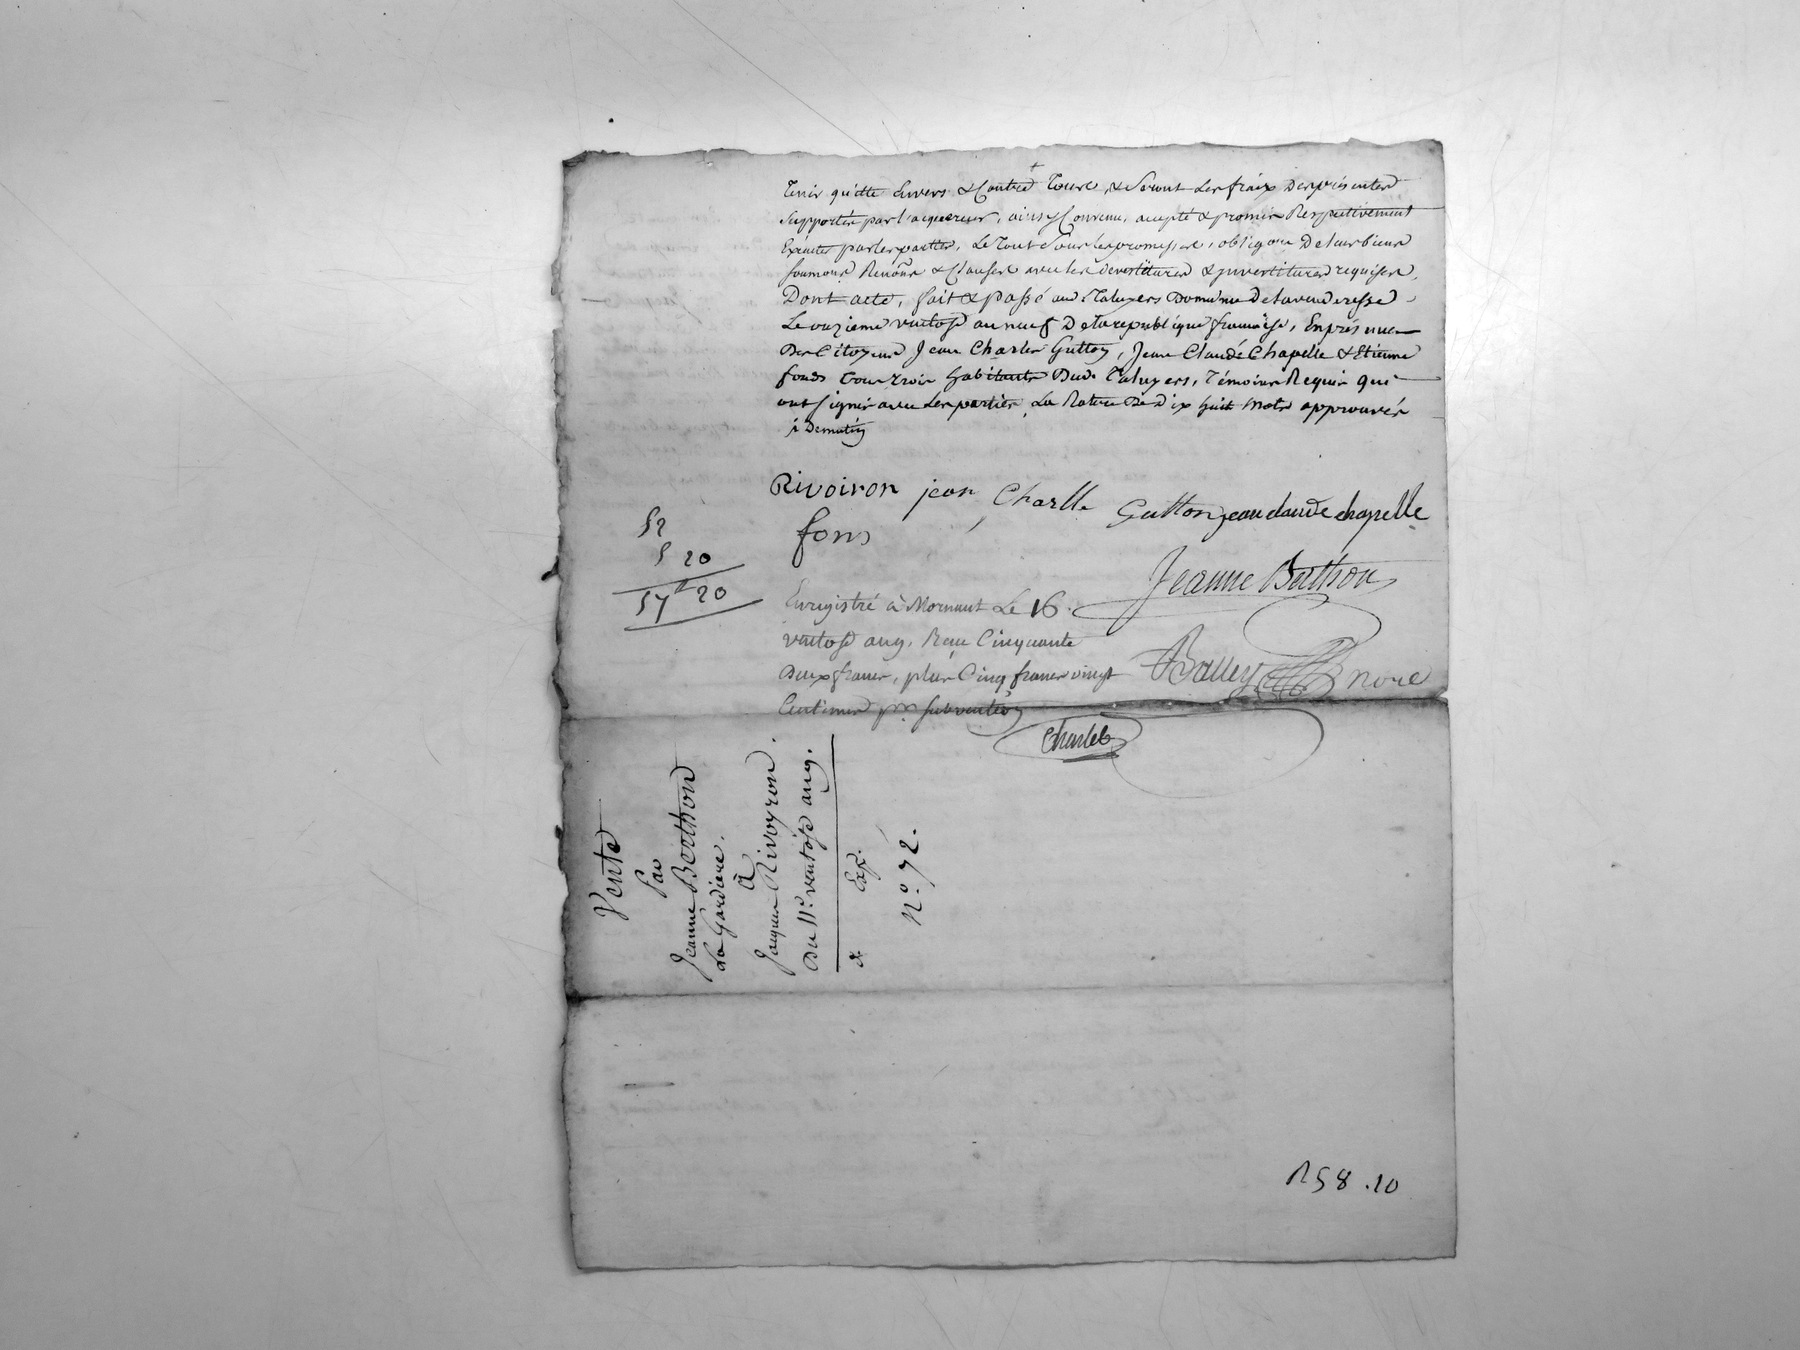 tenir quitte envers & Contre tous, & Seront Les fraix des présentes
Supportés par l'acquereur, ainsy Convenu, accepté & promis Respectivement
Exécuter par les parties, Le Tout Sous les promesses, obligaon De leurs biens
soumons Renons & Clauses avec les devestitures & jnvestitures requises,
Dont acte, fait & passé aud. Taluyers Domicile De la venderesse
Le onzieme ventose an neuf De la republique française, En présence
Des Citoyens Jean Charles Gutton, Jean Claude Chapelle & Etienne
fonds tous trois habitants Dud. Taluyers, Témoins Requis qui
ont signés avec Les parties La Rature De Dix huit mots approuvés
Rivoiron jean Charlle Gutton jean claude chapelle
fons
52
5 20
57 20
Jeanne Berthon
Enregistré à Mornant Le 16
ventose an 9. Reçu Cinquante
Deux francs, plus Cinq francs vingt
Centimes pr. subvention
Balley nore
Charlet
Vente
Par
Jeanne Berthon
La Gardiere.
à
Jacques Rivoyron.
Du 11e. ventose an 9.
& Exp.
N.° 72.
158.10